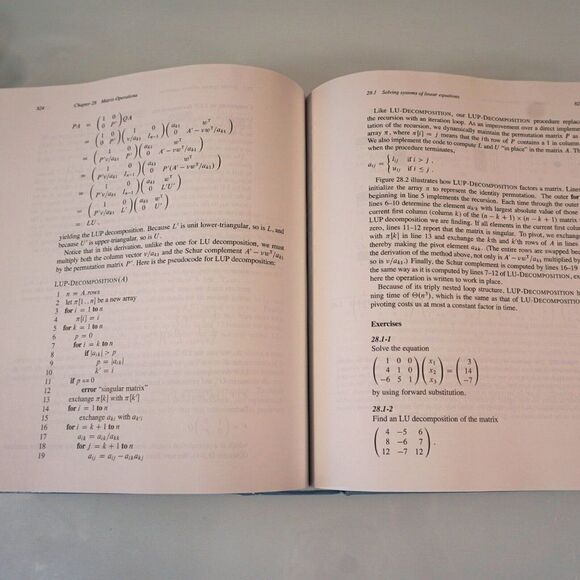 824 Chapter 28 Matrix Operations
PA = ( 1 0 ; 0 P′ ) QA
= ( 1 0 ; 0 P′ ) ( 1 0 ; v/a_k1 I_n−1 ) ( a_k1 w^T ; 0 A′ − vw^T/a_k1 )
= ( 1 0 ; P′v/a_k1 P′ ) ( a_k1 w^T ; 0 A′ − vw^T/a_k1 )
= ( 1 0 ; P′v/a_k1 I_n−1 ) ( a_k1 w^T ; 0 P′(A′ − vw^T/a_k1) )
= ( 1 0 ; P′v/a_k1 I_n−1 ) ( a_k1 w^T ; 0 L′U′ )
= ( 1 0 ; P′v/a_k1 L′ ) ( a_k1 w^T ; 0 U′ )
= LU ,
yielding the LUP decomposition. Because L′ is unit lower-triangular, so is L, and
because U′ is upper-triangular, so is U.
Notice that in this derivation, unlike the one for LU decomposition, we must
multiply both the column vector v/a_k1 and the Schur complement A′ − vw^T/a_k1
by the permutation matrix P′. Here is the pseudocode for LUP decomposition:
LUP-DECOMPOSITION(A)
1 n = A.rows
2 let π[1..n] be a new array
3 for i = 1 to n
4 π[i] = i
5 for k = 1 to n
6 p = 0
7 for i = k to n
8 if |a_ik| > p
9 p = |a_ik|
10 k′ = i
11 if p == 0
12 error “singular matrix”
13 exchange π[k] with π[k′]
14 for i = 1 to n
15 exchange a_ki with a_k′i
16 for i = k + 1 to n
17 a_ik = a_ik/a_kk
18 for j = k + 1 to n
19 a_ij = a_ij − a_ik a_kj
28.1 Solving systems of linear equations
Like LU-DECOMPOSITION, our LUP-DECOMPOSITION procedure replac
the recursion with an iteration loop. As an improvement over a direct implemen
tation of the recursion, we dynamically maintain the permutation matrix P as
array π, where π[i] = j means that the ith row of P contains a 1 in column
We also implement the code to compute L and U “in place” in the matrix A. Th
when the procedure terminates,
a_ij = { l_ij if i > j ,
u_ij if i ≤ j .
Figure 28.2 illustrates how LUP-DECOMPOSITION factors a matrix. Lines
initialize the array π to represent the identity permutation. The outer for
beginning in line 5 implements the recursion. Each time through the outer
lines 6–10 determine the element a_k′k with largest absolute value of those
current first column (column k) of the (n − k + 1) × (n − k + 1) matrix
LUP decomposition we are finding. If all elements in the current first colum
zero, lines 11–12 report that the matrix is singular. To pivot, we exchang
with π[k] in line 13 and exchange the kth and k′th rows of A in lines
thereby making the pivot element a_kk. (The entire rows are swapped bec
the derivation of the method above, not only is A′ − vw^T/a_k1 multiplied by
so is v/a_k1.) Finally, the Schur complement is computed by lines 16–19
the same way as it is computed by lines 7–12 of LU-DECOMPOSITION, ex
here the operation is written to work in place.
Because of its triply nested loop structure, LUP-DECOMPOSITION ha
ning time of Θ(n³), which is the same as that of LU-DECOMPOSITION
pivoting costs us at most a constant factor in time.
Exercises
28.1-1
Solve the equation
( 1 0 0 ) ( x₁ ) ( 3 )
( 4 1 0 ) ( x₂ ) = ( 14 )
( −6 5 1 ) ( x₃ ) ( −7 )
by using forward substitution.
28.1-2
Find an LU decomposition of the matrix
( 4 −5 6 )
( 8 −6 7 ) .
( 12 −7 12 )